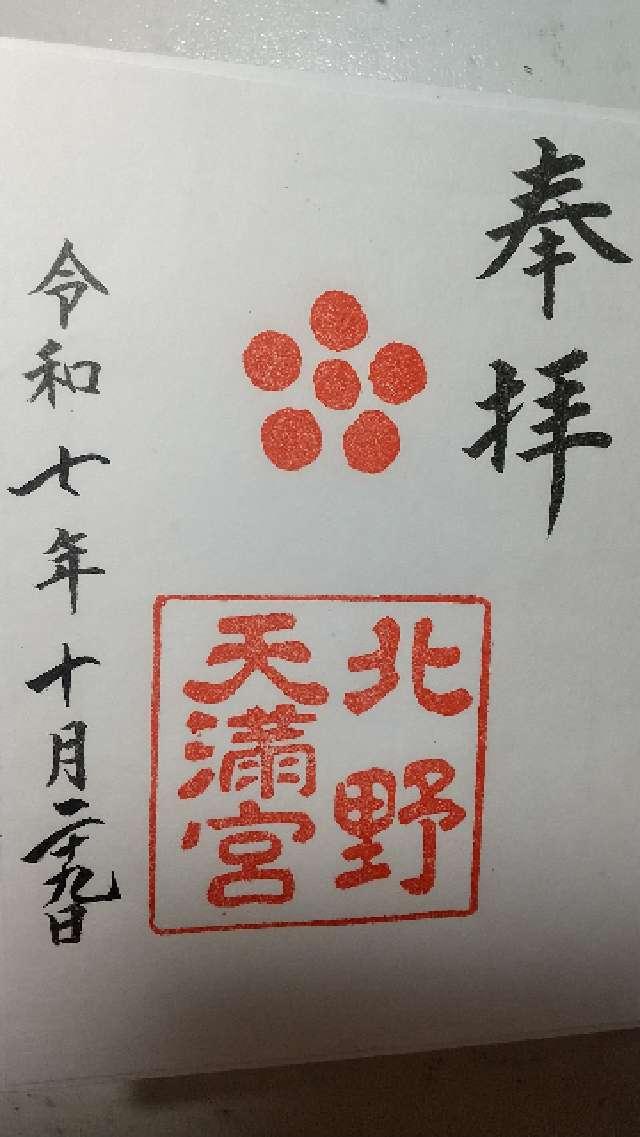 奉拝
北野
天満宮
令和七年十月二十九日